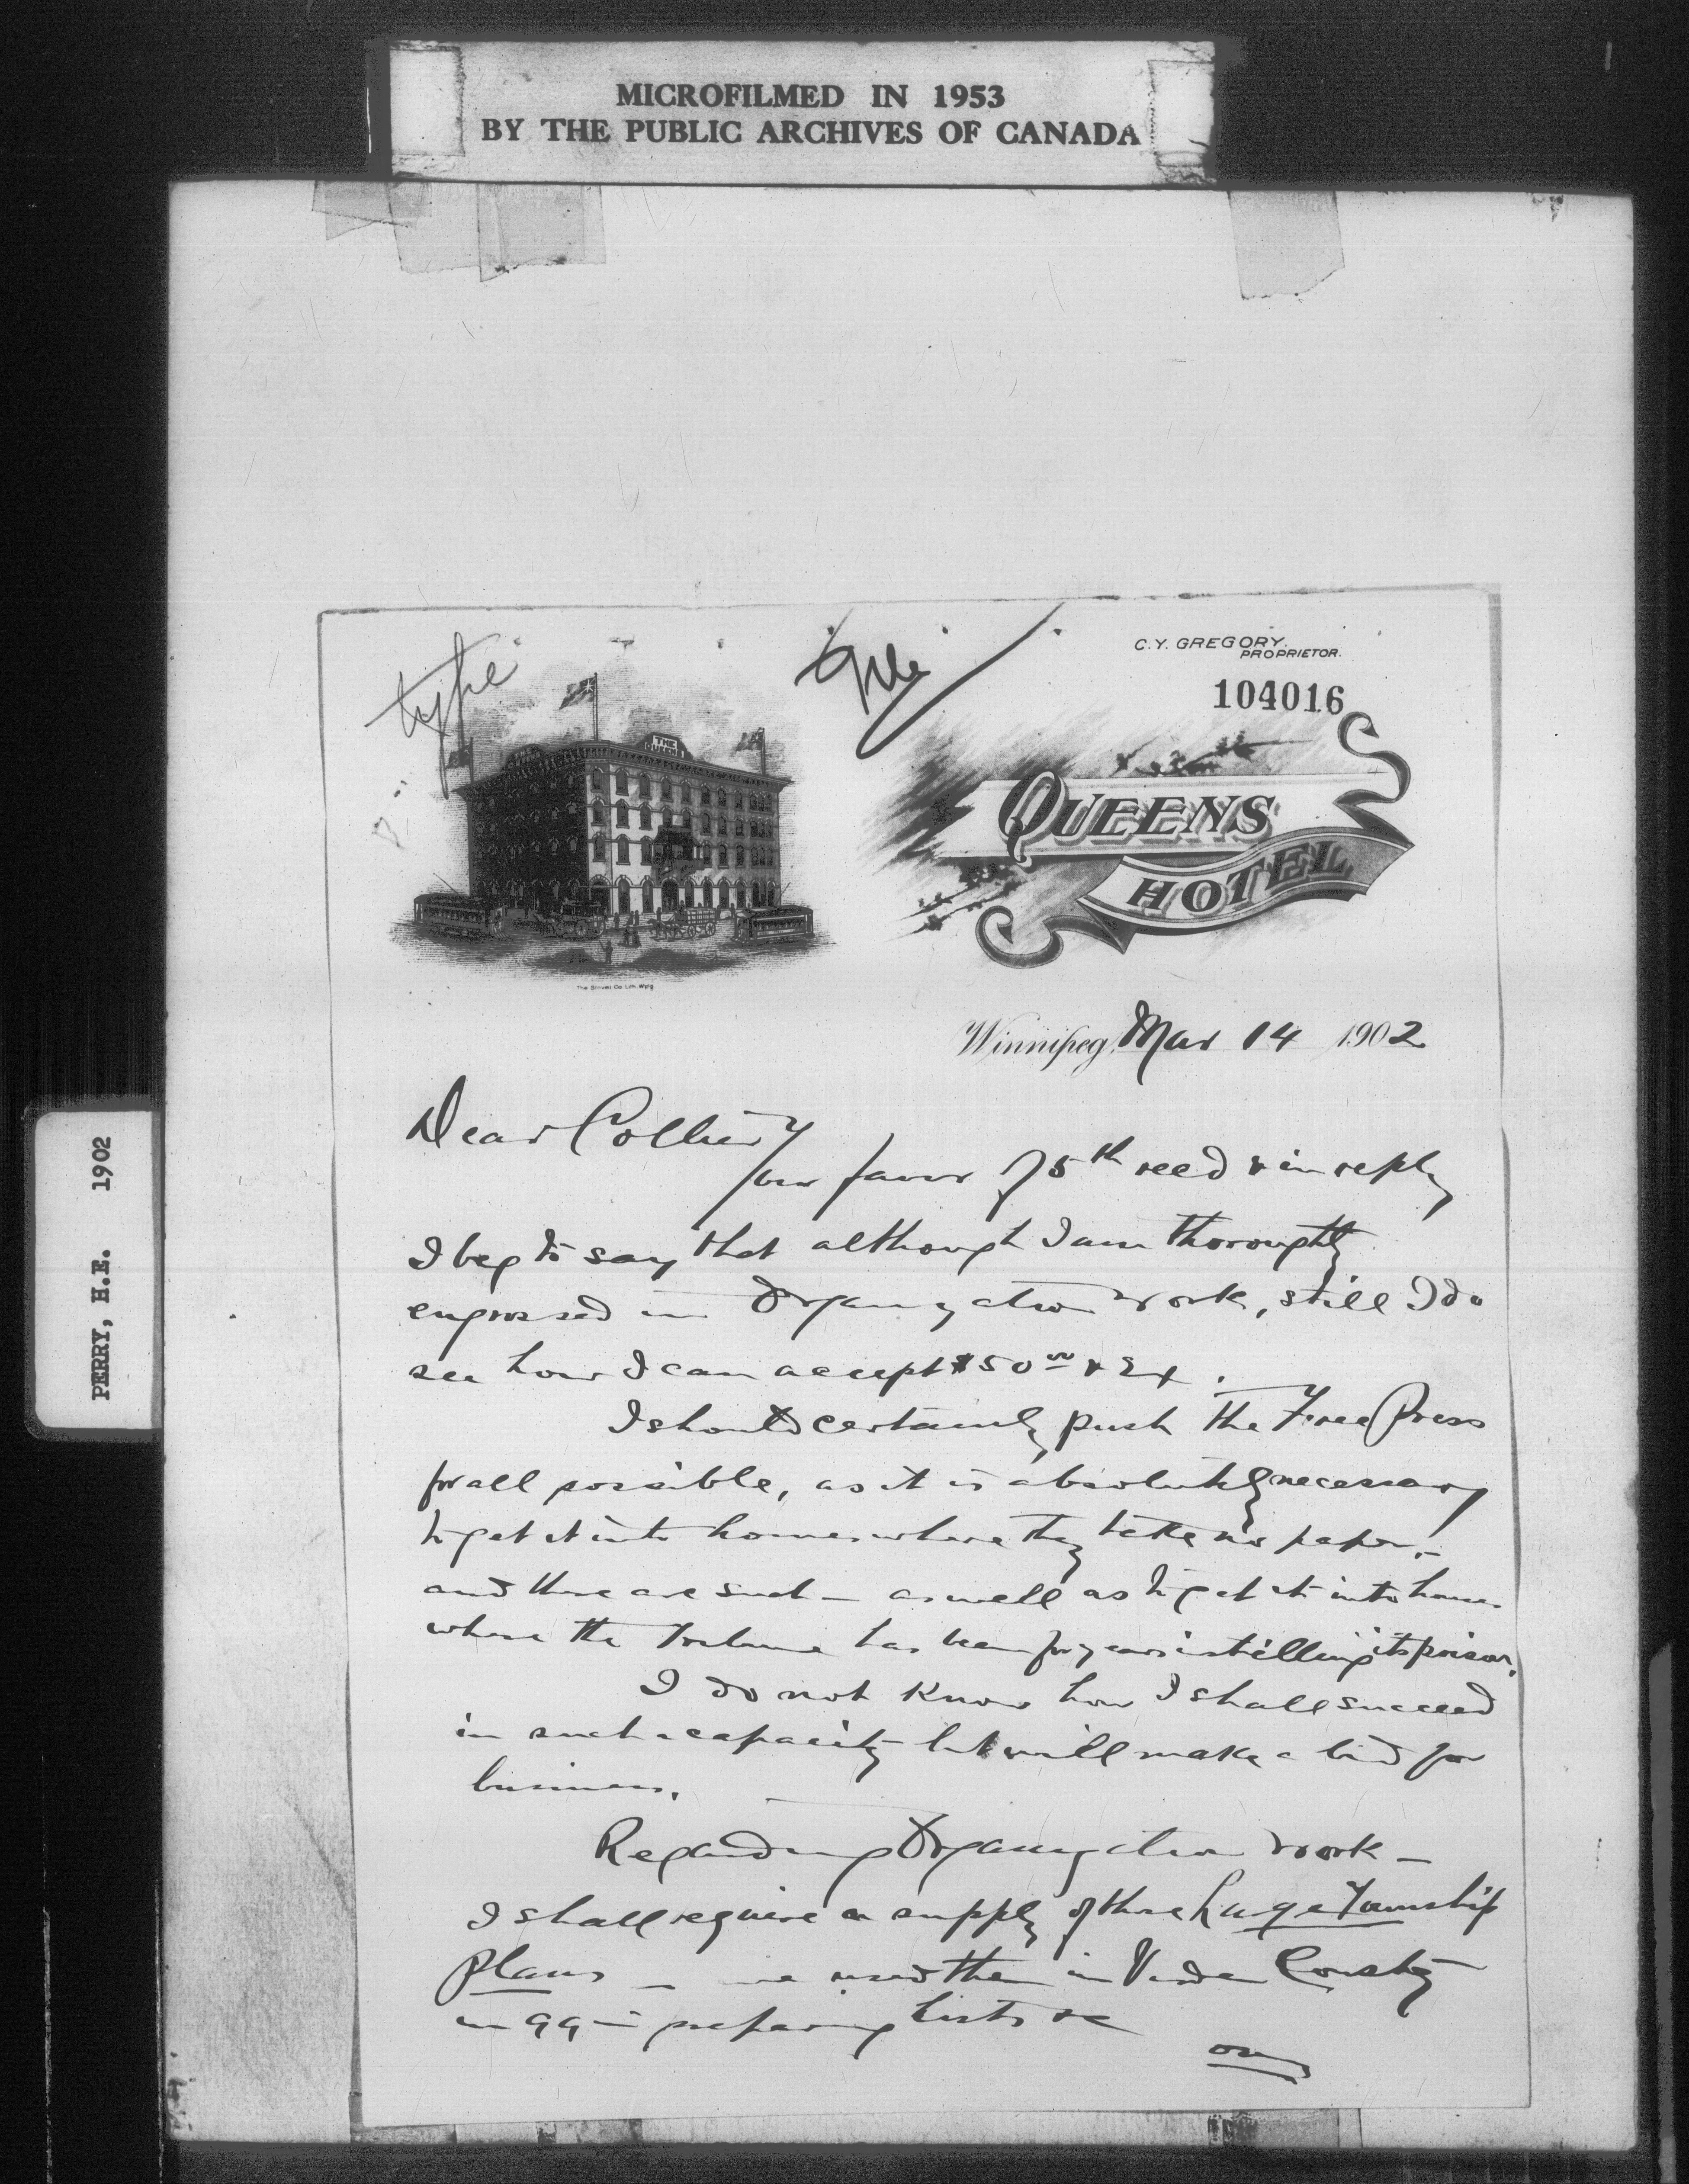 MICROFILMED IN 1953
BY THE PUBLIC ARCHIVES OF CANADA
PERRY, H.E. 1902
type
C.Y. GREGORY.
PROPRIETOR.
104016
THE QUEENS
THE QUEENS
QUEENS
HOTEL
The Stovel Co Lith. Wpg
Winnipeg, Mar 14 1902
Dear Collier
Your favor of 5th recd & in reply
I beg to say that although I am thoroughly
engrossed in Organization work, still I do
see how I can accept $50 00 & Ex.
I should certainly push the Free Press
for all possible, as it is absolutely necessary
to get it into homes where they take no paper, -
and there are such - as well as to get it into homes
where the Tribune has been for years instilling its poison.
I do not know how I shall succeed
in such a capacity but will make a bid for
business.
Regarding Organization work -
I shall require a supply of those Large Township
Plans - we used them in Virden Consty
in 99 - preparing lists &c